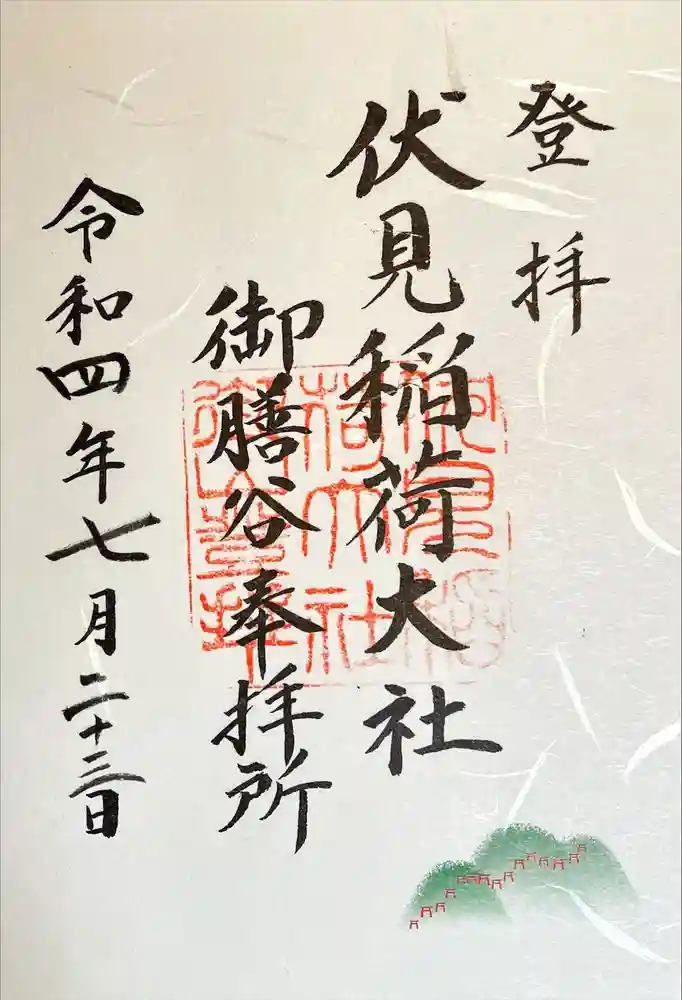 登拝
伏見稲荷大社
御膳谷奉拝所
令和四年七月二十三日